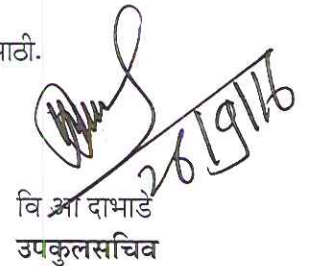 साठी.
26/9/16
वि ओ दाभाडे
उपकुलसचिव